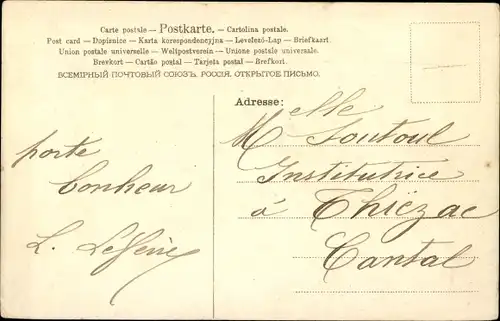 Carte postale — Postkarte. — Cartolina postale.
Post card — Dopisnice — Karta korespondencyjna — Levelező-Lap — Briefkaart.
Union postale universelle — Weltpostverein — Unione postale universale.
Brevkort — Cartão postal — Tarjeta postal — Brefkort.
ВСЕМІРНЫЙ ПОЧТОВЫЙ СОЮЗЪ. РОССІЯ. ОТКРЫТОЕ ПИСЬМО.
Adresse:
Melle Soutoul
Institutrice
à Thiézac
Cantal
porte
bonheur
L.